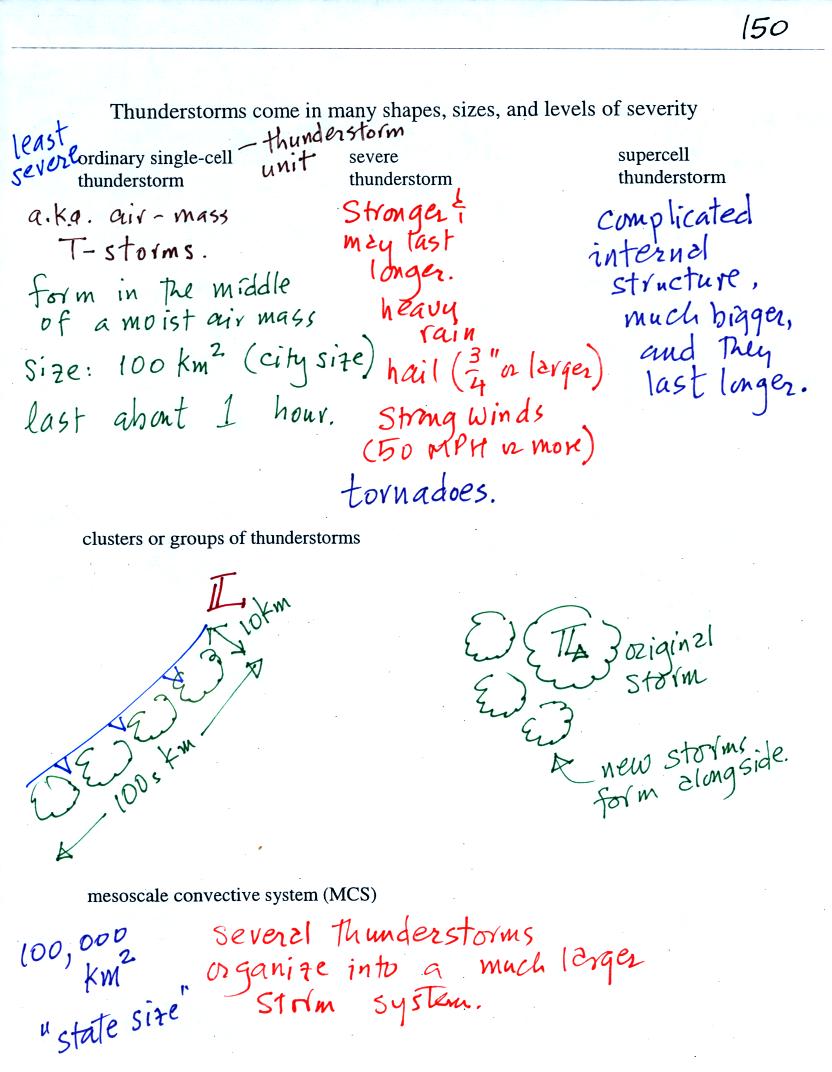 150
Thunderstorms come in many shapes, sizes, and levels of severity
least
severe
ordinary single-cell
thunderstorm
— thunderstorm
unit
a.k.a. air-mass
T-storms.
form in the middle
of a moist air mass
Size: 100 km² (city size)
last about 1 hour.
severe
thunderstorm
Stronger &
may last
longer.
heavy
rain
hail (3/4" or larger)
Strong winds
(50 MPH or more)
tornadoes.
supercell
thunderstorm
complicated
internal
structure,
much bigger,
and they
last longer.
clusters or groups of thunderstorms
L
10km
100s km
original
storm
new storms
form alongside.
mesoscale convective system (MCS)
100,000
km²
"state size"
several thunderstorms
organize into a much larger
storm system.